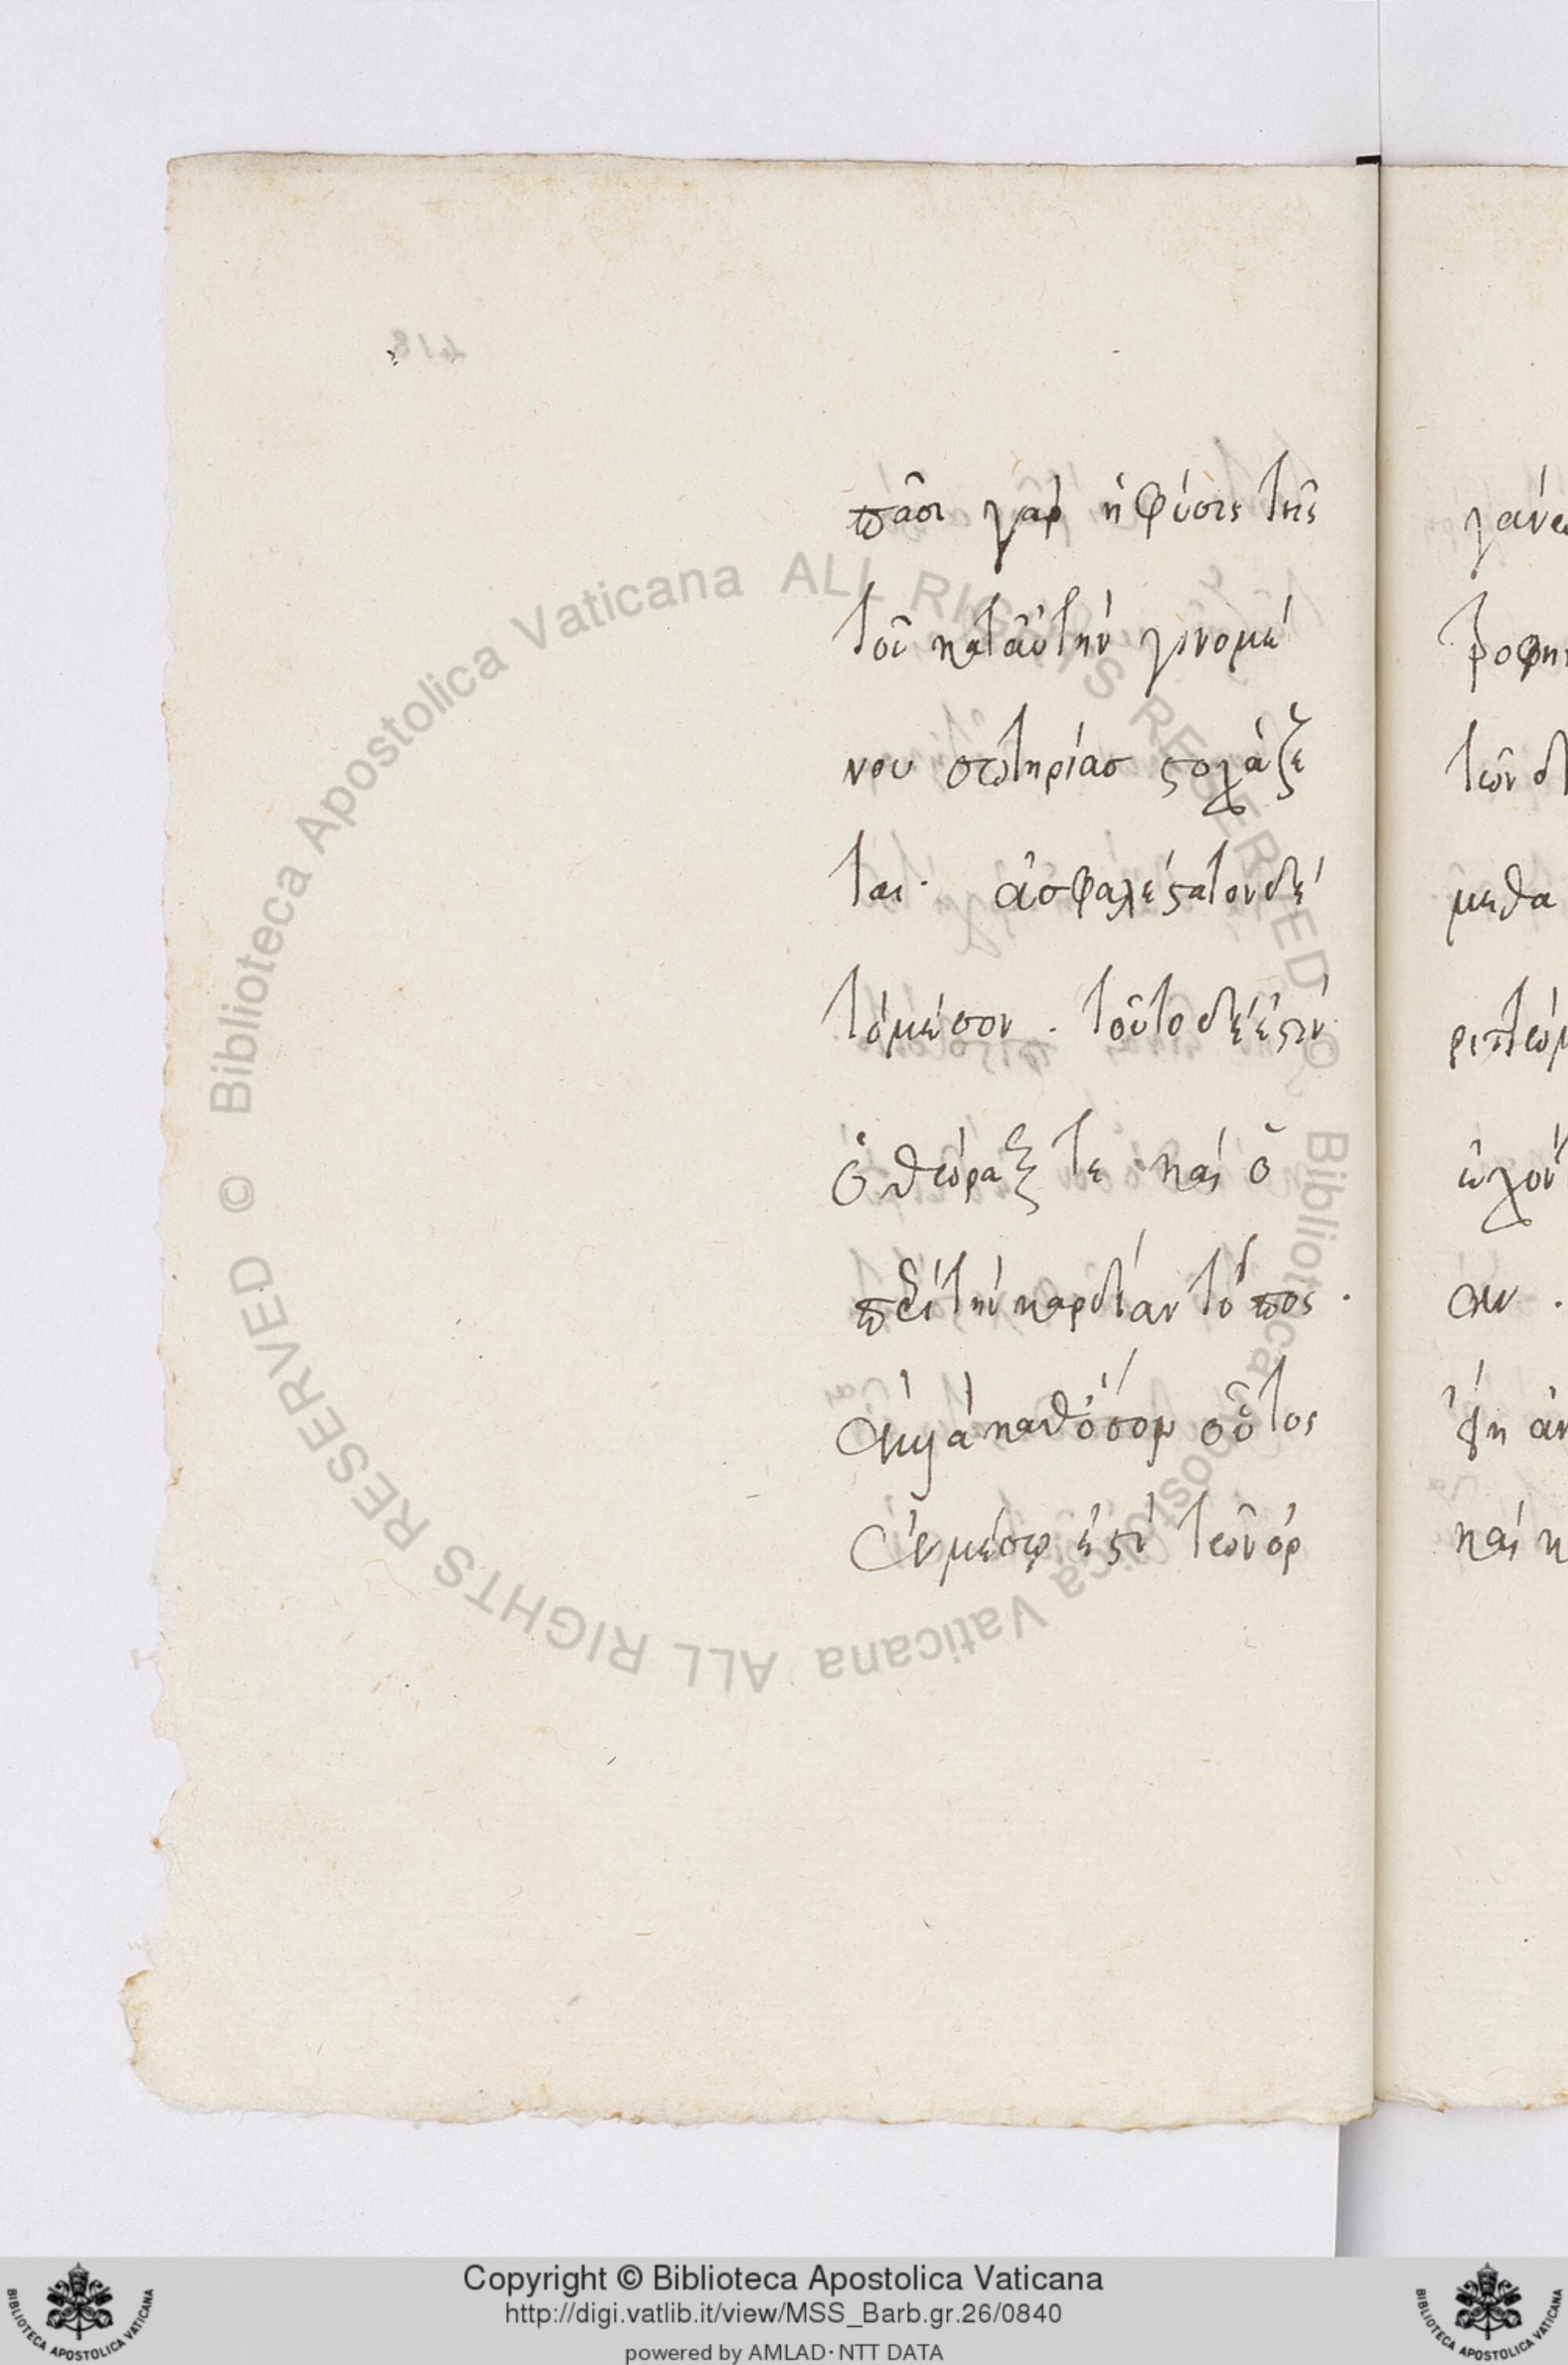 πᾶσι γὰρ ἡ φύσις τῆς
τοῦ κατ' αὐτὴν γινομέ
νου σωτηρίασ στοχάζε
ται· ἀσφαλέστατον δέ
τὸ μέσον · τοῦτο δέ ἐστιν
ὁ θώραξ τε καὶ ὁ
περὶ τὴν καρδίαν τόπος ·
ἀλλὰ καθόσον οὗτος
ἐν μέσῳ ἐστὶ τῶν ὀρ
418
Biblioteca Apostolica Vaticana ALL RIGHTS RESERVED © Biblioteca Apostolica Vaticana ALL RIGHTS RESERVED ©
Copyright © Biblioteca Apostolica Vaticana
http://digi.vatlib.it/view/MSS_Barb.gr.26/0840
powered by AMLAD·NTT DATA
BIBLIOTECA APOSTOLICA VATICANA
BIBLIOTECA APOSTOLICA VATICANA